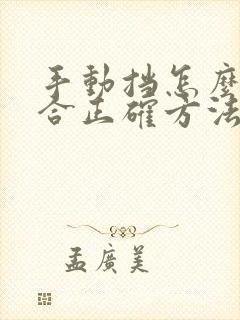 手動挡怎麼
合正確方法
孟廣美